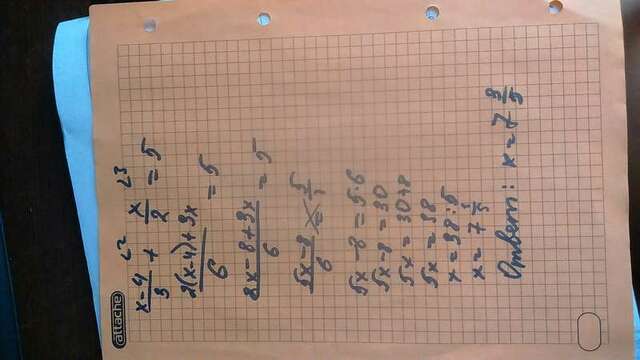 attache
x-4/3 + x/2 = 5
2(x-4)+3x/6 = 5
2x-8+3x/6 = 5
5x-8/6 = 5/1
5x-8 = 5·6
5x-8 = 30
5x = 30+8
5x = 38
x = 38:5
x = 7 3/5
Ответ: x = 7 3/5